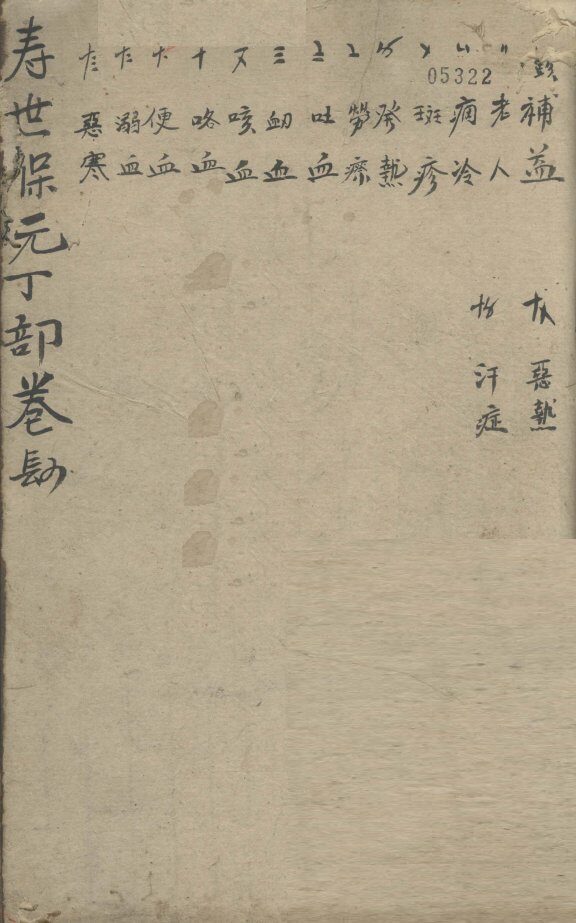 補益
老人
痼冷
斑疹
發熱
勞瘵
吐血
衂血
咳血
咯血
便血
溺血
惡寒
惡熱
汗症
05322
寿世保元丁部卷